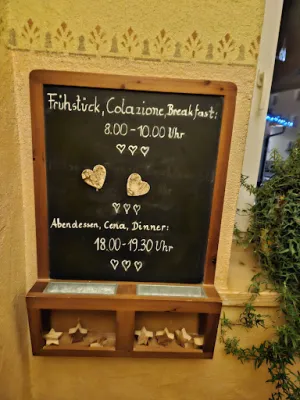 Frühstück, Colazione, Breakfast:
8.00-10.00 Uhr
Abendessen, Cena, Dinner:
18.00-19.30 Uhr